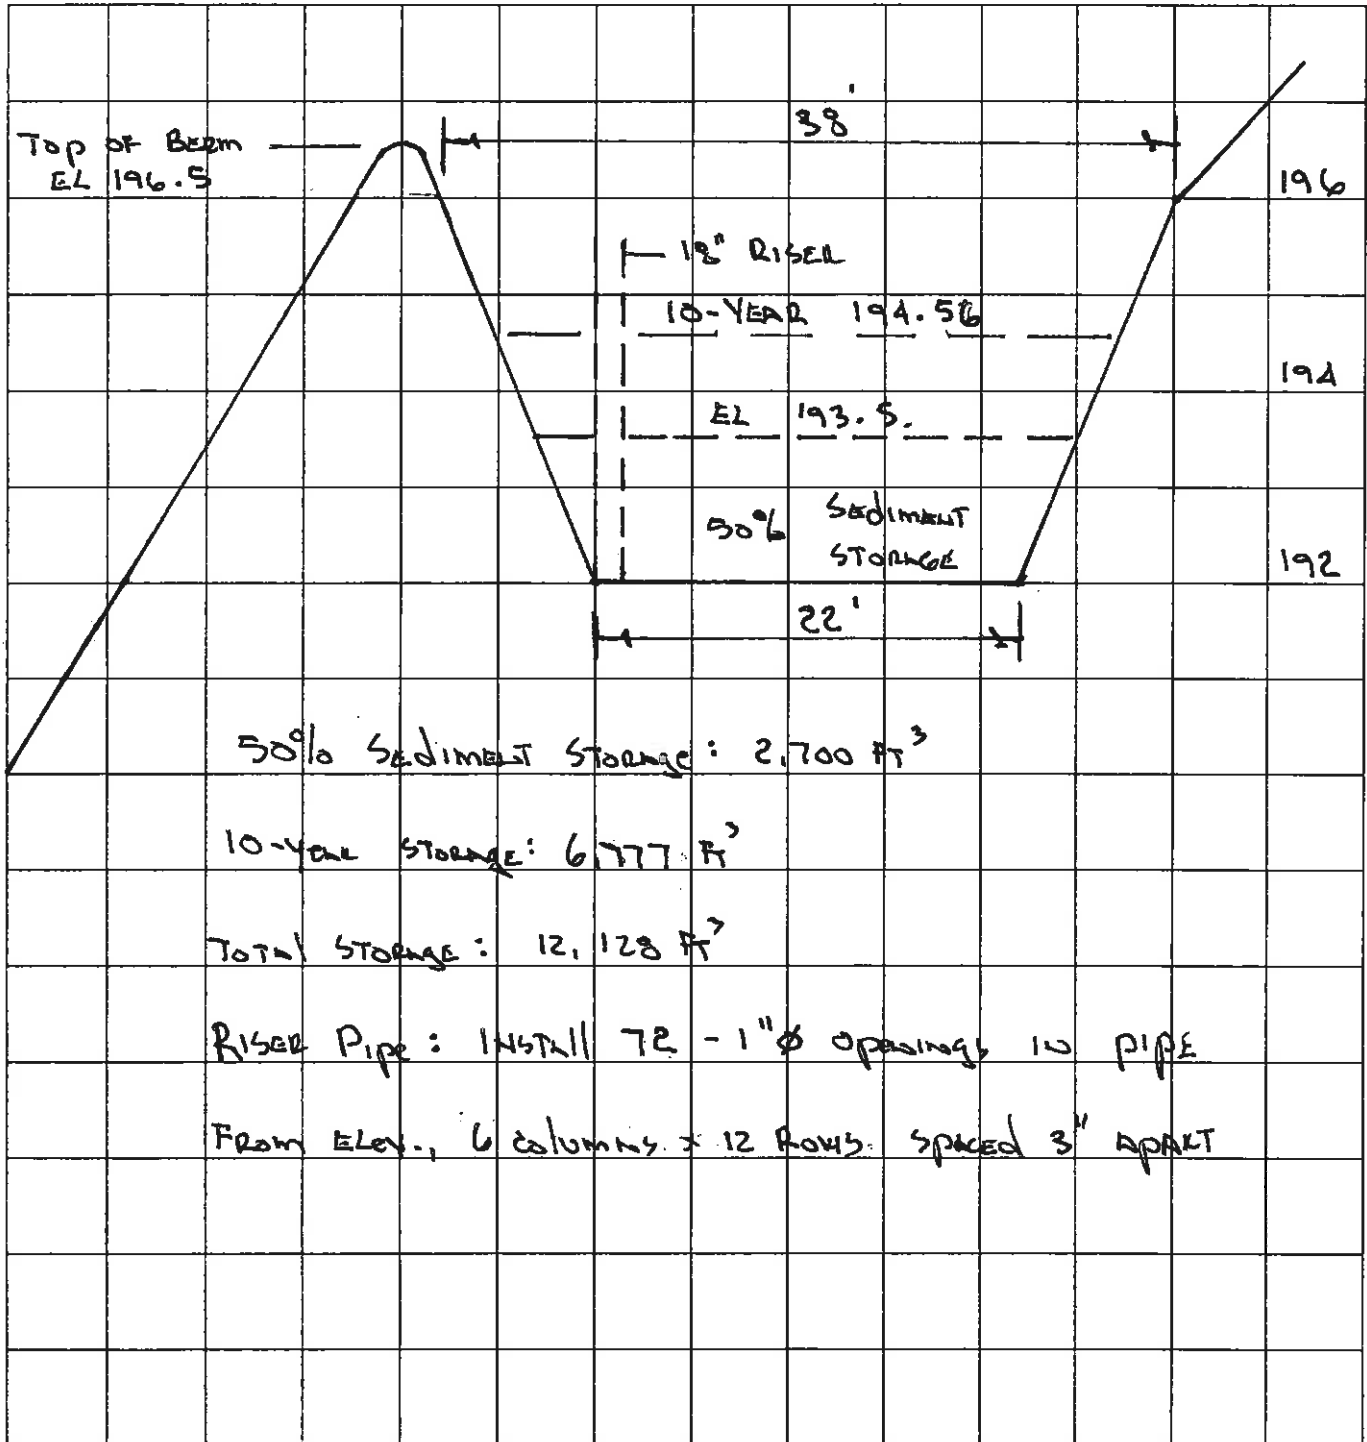 38'
Top of Berm
EL 196.5
196
18" RISER
10-YEAR 194.56
194
EL 193.5.
50% SEDIMENT
STORAGE
192
22'
50% SEDIMENT STORAGE: 2,700 FT³
10-YEAR STORAGE: 6,777 FT³
TOTAL STORAGE: 12,128 FT³
RISER PIPE: INSTALL 72 - 1"Ø OPENINGS IN PIPE
FROM ELEV., 6 COLUMNS × 12 ROWS SPACED 3" APART